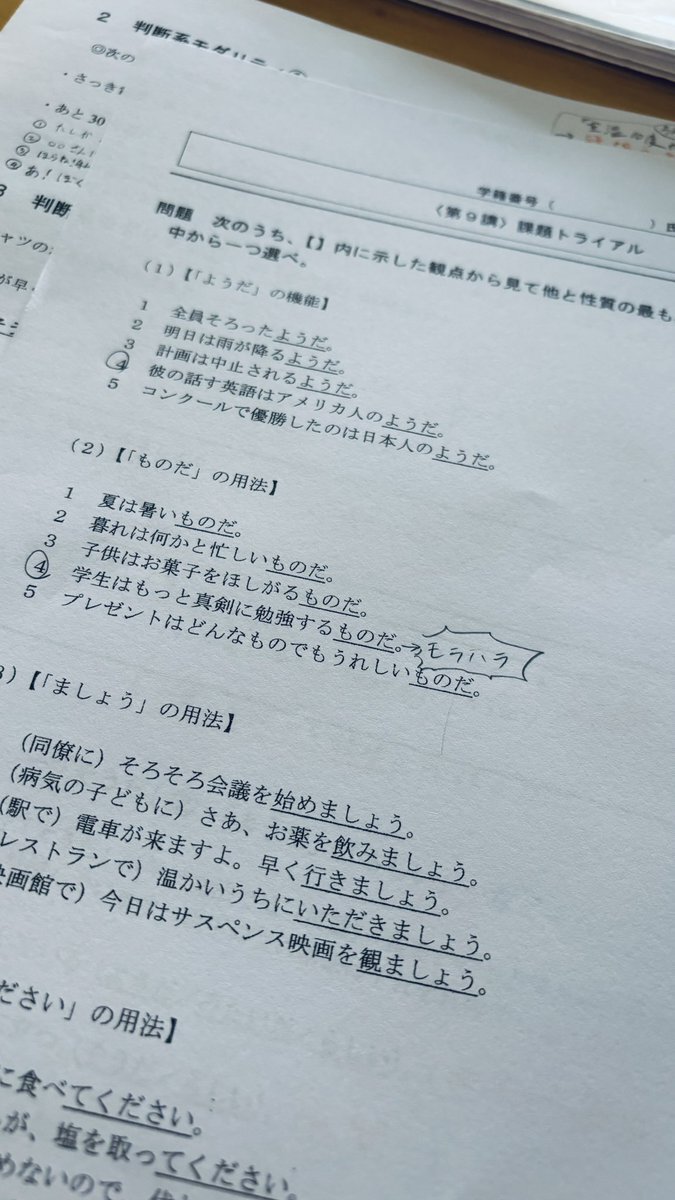 2 判断系モダリティ
◎次の
・さっき
・あと30
3 判断
学籍番号（　　　　　）氏
〈第９講〉課題トライアル
問題　次のうち、【】内に示した観点から見て他と性質の最も
中から一つ選べ。
（1）【「ようだ」の機能】
1 全員そろったようだ。
2 明日は雨が降るようだ。
3 計画は中止されるようだ。
④ 彼の話す英語はアメリカ人のようだ。
5 コンクールで優勝したのは日本人のようだ。
（2）【「ものだ」の用法】
1 夏は暑いものだ。
2 暮れは何かと忙しいものだ。
3 子供はお菓子をほしがるものだ。
④ 学生はもっと真剣に勉強するものだ。→モラハラ
5 プレゼントはどんなものでもうれしいものだ。
3）【「ましょう」の用法】
（同僚に）そろそろ会議を始めましょう。
（病気の子どもに）さあ、お薬を飲みましょう。
（駅で）電車が来ますよ。早く行きましょう。
レストランで）温かいうちにいただきましょう。
映画館で）今日はサスペンス映画を観ましょう。
ださい」の用法】
に食べてください。
が、塩を取ってください。
めないので、